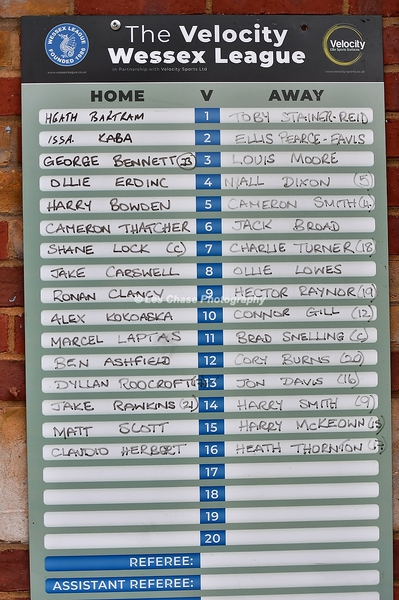 WESSEX LEAGUE
FOUNDED 1986
The Velocity
Wessex League
In Partnership with Velocity Sports Ltd
Velocity
HOME V AWAY
HEATH BARTRAM 1 TOBY STAINER-REID
ISSA KABA 2 ELLIS PEARCE-EAVIS
GEORGE BENNETT 3 LOUIS MOORE
OLLIE ERDINC 4 NIALL DIXON (5)
HARRY BOWDEN 5 CAMERON SMITH (4)
CAMERON THATCHER 6 JACK BROAD
SHANE LOCK (C) 7 CHARLIE TURNER (18)
JAKE CARSWELL 8 OLLIE LOWES
RONAN CLANCY 9 HECTOR RAYNOR (19)
© Les Chase Photography
ALEX KOKOASKA 10 CONNOR GILL (12)
MARCEL LAPTAS 11 BRAD SNELLING (C)
BEN ASHFIELD 12 CORY BURNS (20)
DYLLAN ROOCROFT 13 JON DAVIS (16)
JAKE RAWKINS (21) 14 HARRY SMITH (9)
MATT SCOTT 15 HARRY McKEOWN (15)
CLAUDIO HERBERT 16 HEATH THORNTON (17)
17
18
19
20
REFEREE:
ASSISTANT REFEREE: